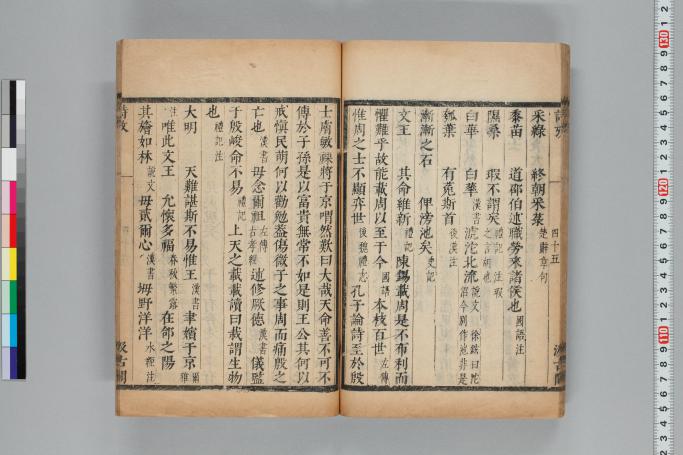 采綠　終朝采菉 楚辭章句
黍苗　道邵伯述職勞來諸侯也 國語注
隰桑　瑕不謂矣 禮記 注瑕之言胡也
白華　白華 漢書 滮沱北流 說文 徐鉉曰沱沼今別作池非是
瓠葉　有菟斯首 後漢注
漸漸之石　俾滂池矣 史記
文王　其命維新 禮記 陳錫載周是不布利而
懼難乎故能載周以至于今 國語 本枝百世 左傳
惟周之士不顯弈世 後魏禮志 孔子論詩至於殷
士膚敏祼將于京喟然歎曰大哉天命善不可不
傳於子孫是以富貴無常不如是則王公其何以
戒慎民萌何以勸勉蓋傷微子之事周而痛殷之
亡也 漢書 毋念爾祖 左傳 古孝經 述修厥德 漢書 儀監
于殷峻命不易 禮記 上天之載載讀曰栽謂生物
也 禮記注
大明　天難諶斯不易惟王 漢書 聿嬪于京 爾雅
注 唯此文王　允懷多福 春秋繁露 在郃之陽
其旝如林 說文 毋貳爾心 漢書 坶野洋洋 水經注
詩攷
四十五
汲古閣